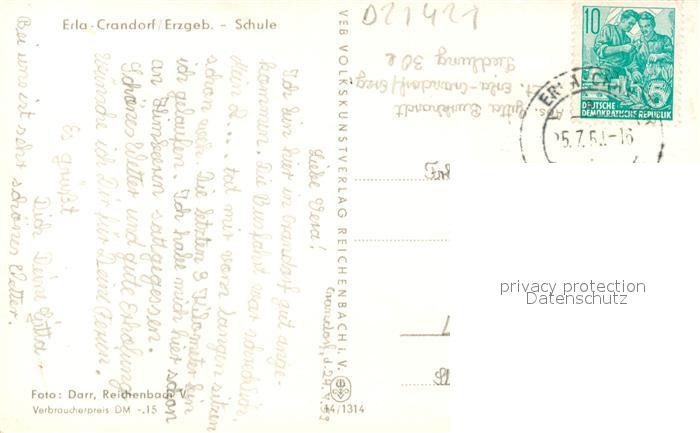 Erla-Crandorf/Erzgeb. - Schule
D21421
VEB VOLKSKUNSTVERLAG REICHENBACH i. V.
Abs. Gitta Burkhardt
Erla-Crandorf/Erzg.
Siedlung 30 e
10
5
DEUTSCHE
DEMOKRATISCHE REPUBLIK
Crandorf, d. 24.
Liebe Vera!
Ich bin hier in Crandorf gut ange-
kommen. Die Busfahrt war schrecklich.
Mein tat mir vom langen sitzen
schon weh. Die letzten 3 Kilometer bin
ich gelaufen. Ich habe mich hier schon
an Himbeeren sattgegessen.
Schönes Wetter und gute Erholung
wünsche ich Dir für Deine Ferien.
Es grüßt
Dich Deine Gitta.
Bei uns ist sehr schönes Wetter.
Foto: Darr, Reichenbach V.
Verbraucherpreis DM -.15
14/1314
privacy protection
Datenschutz